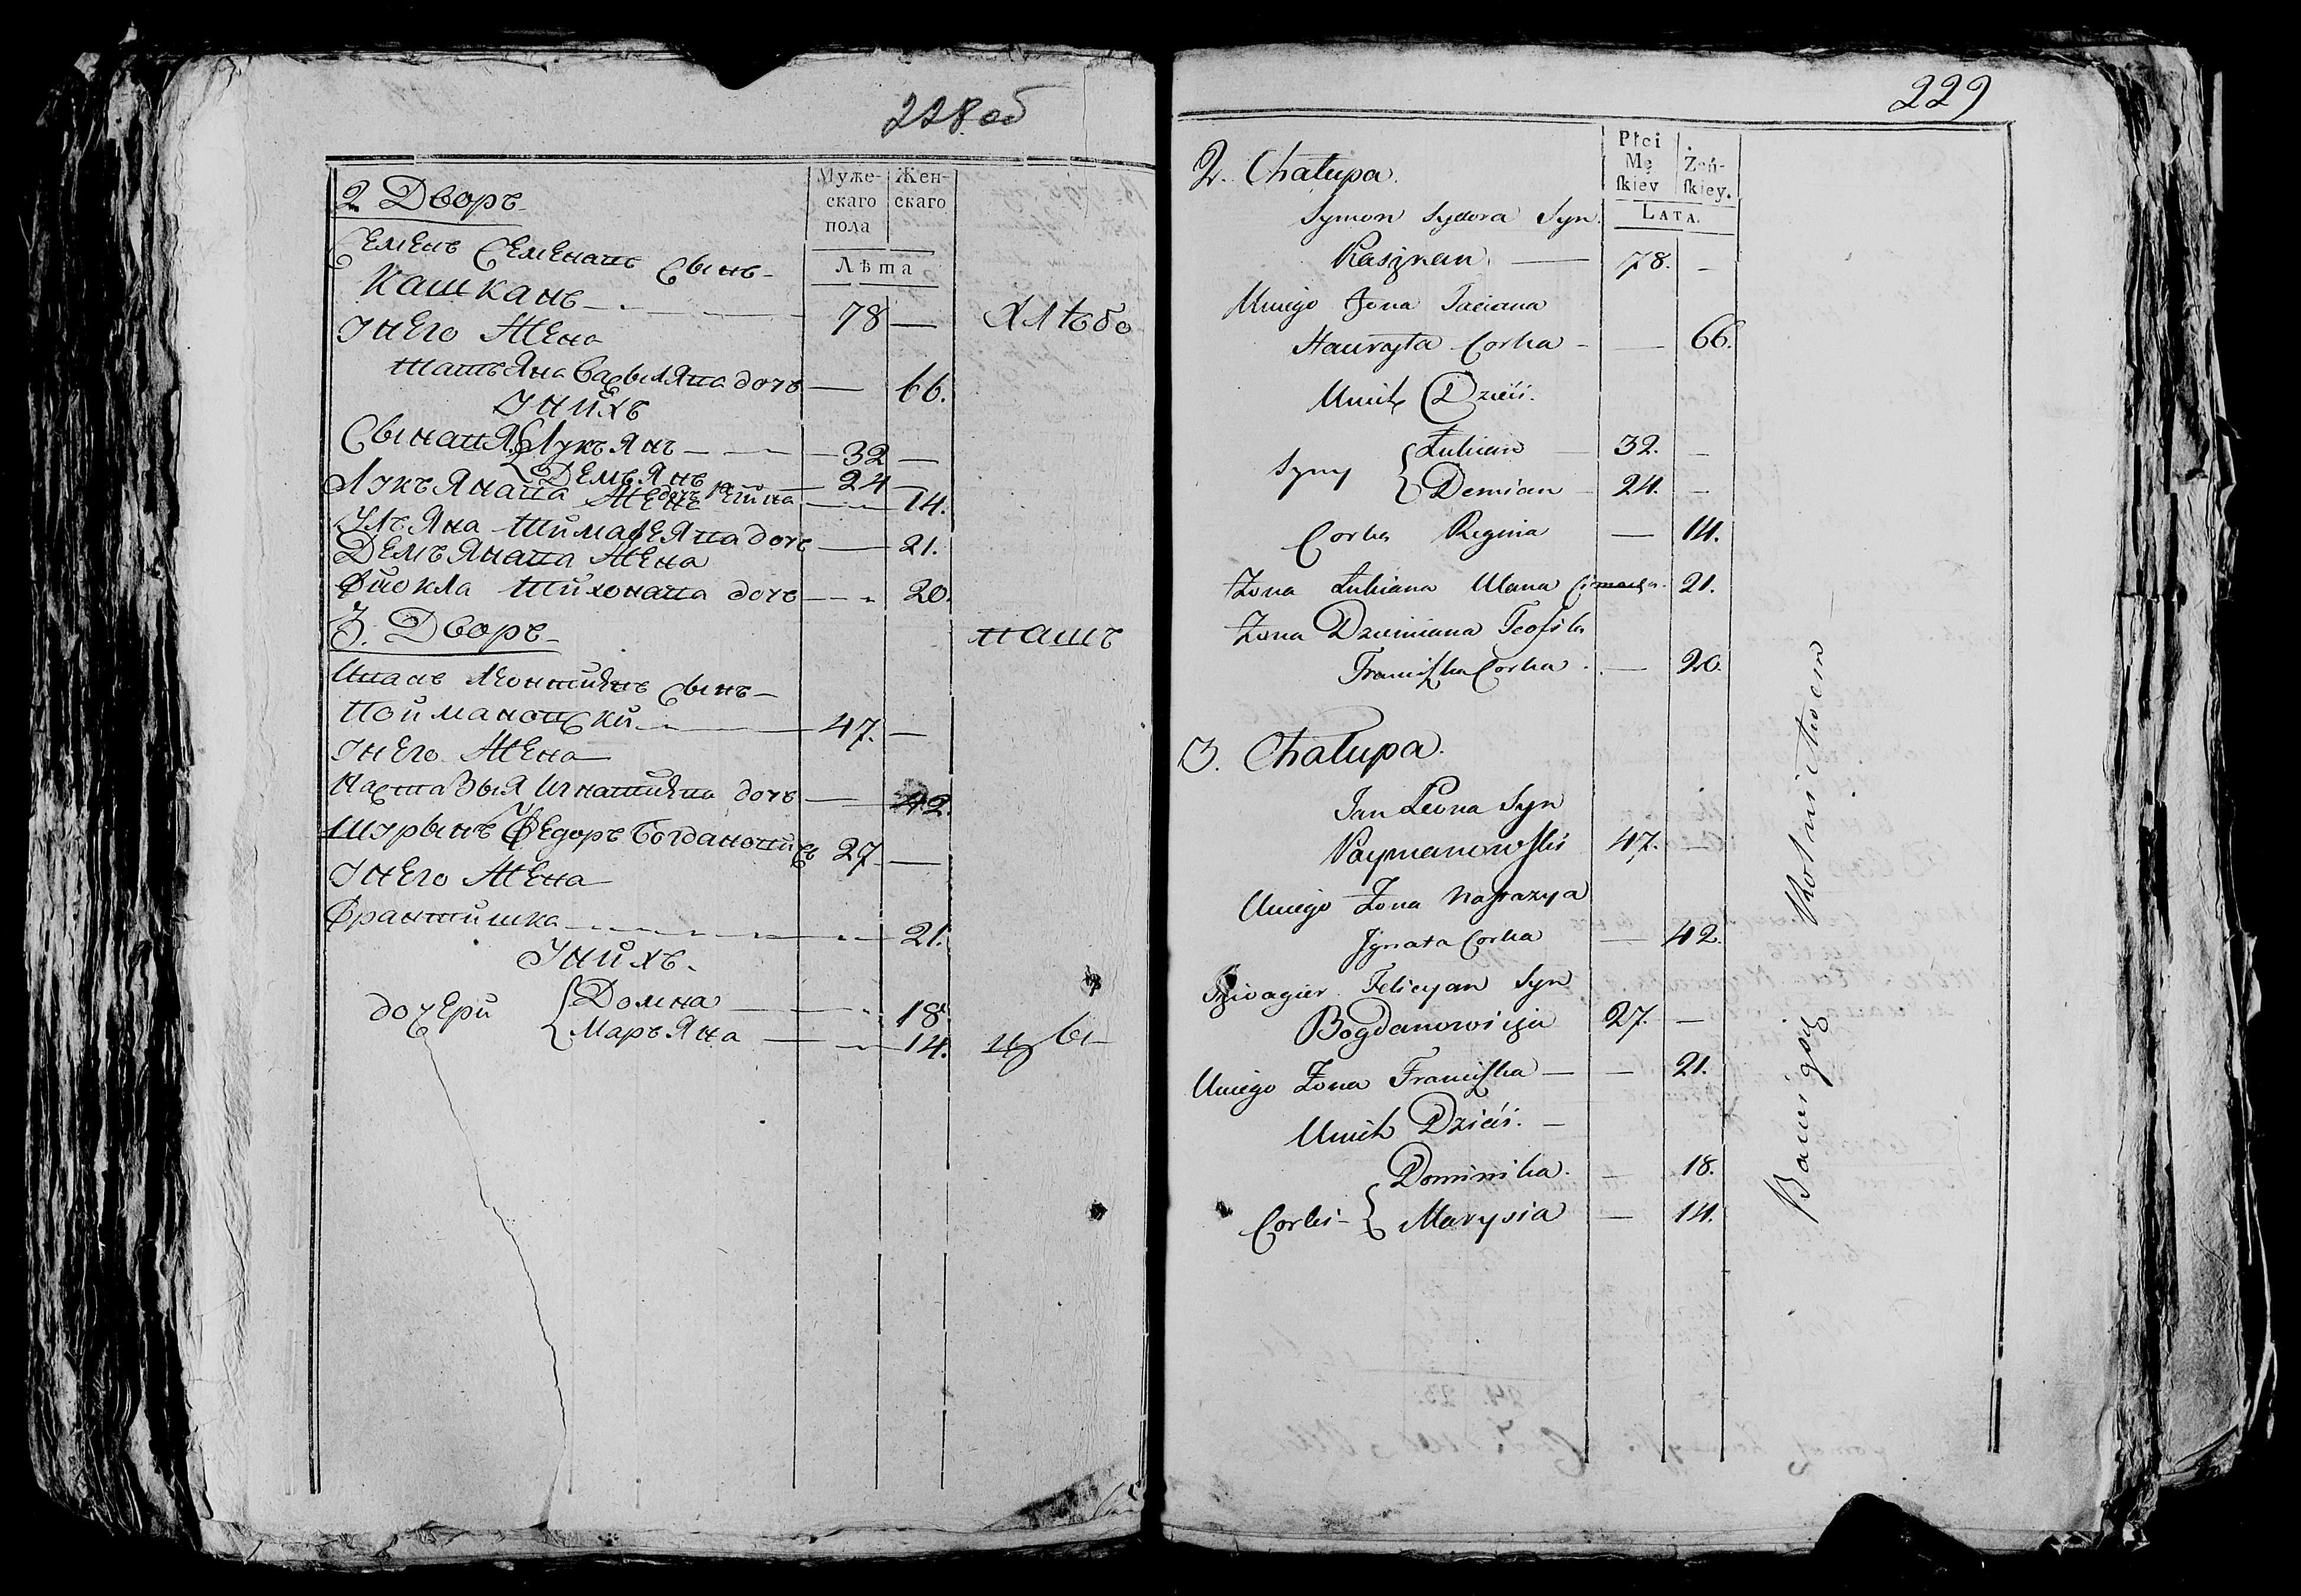 228 об
2 Дворъ
Муже-
скаго
пола
Жен-
скаго
Лѣта
Семенъ Семеновъ Сынъ
Кашканъ 78 —
Хлѣбо
У него Жена
Татьяна Савыляна дочь — 66.
У нихъ
Сыновья Лукъянъ 32 —
Демъянъ 24 —
дочь Регина — 14.
Лукъянова Жена
Ульяна Тимофеяна дочь — 21.
Демъянова Жена
Фиокла Тихонова дочь — 20.
3. Дворъ
пашъ
Иванъ Леонтиянъ Сынъ
Поймановски 47. —
У него Жена
Настазыя Игнатияна дочь — 42.
Шурынъ Федоръ Богданович 27 —
У него Жена
Франтишка — 21.
У нихъ
дочери Домна — 18
Маръяна — 14.
цы
229
2. Chałupa.
Płci
Mę
ſkiey
Żeń-
ſkiey.
Lata.
Symon Sydora Syn
Kaszkan 78. —
U niego Żona Taciana
Hauryła Corka — 66.
U nich Dzieci.
Syny Łukian 32. —
Demian 24. —
Corka Regina — 14.
Żona Łukiana Ulana 21.
Żona Dziemiana Teofila
Franciſzka Corka — 20.
3. Chałupa.
Jan Leona Syn
Poymanowſki 47. —
U niego Żona Naſtazya
Jgnata Corka — 42.
Szwagier Felicyan Syn
Bogdanowicza 27. —
U niego Żona Franciſzka — 21.
U nich Dzieci. —
Dominika — 18.
Corki Marysia — 14.
Bawią się Rolnictwem